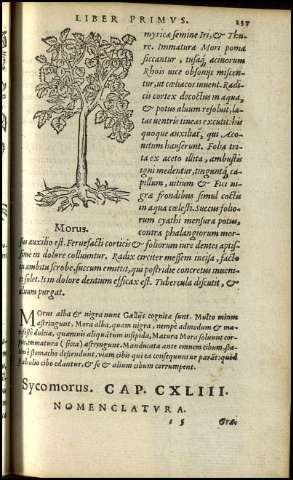 LIBER PRIMVS. 137
myrica semine tri, & Thu-
re. Immatura Mori poma
siccantur, tusaq; acinorum
Rhois uice obsonijs miscen-
tur, ut cœliacos iuuent. Radi-
cis cortex decoctus in aqua,
& potus aluum resoluit, la-
tas uentris tineas excutit: his
quoque auxiliat, qui Aco-
nitum hauserunt. Folia tri-
ta ex aceto illita, ambustis
igni medentur, tingunt
capillum, uitium & Fici ni-
gra frondibus simul coctis
in aqua cœlesti. Succus folio-
rum cyathi mensura potus,
contra phalangiorum mor-
Morus.
sus auxilio est. Feruefacti corticis & foliorum iure dentes aptis-
sime in dolore colluuntur. Radix circiter messem incisa, facto
in ambitu scrobe, succum emittit, qui postridie concretus inueni-
solet. is in dolore dentium efficax est. Tubercula discutit, &
aluum purgat.
MOrus alba & nigra nunc Gallijs cognitæ sunt. Multo minus
astringunt. Mora alba, quam nigra, nempe admodum & ma-
dulcia, quamuis aliquātum insipida, Matura Mora soluunt cor-
immatura (sicca) astringunt. Manducata ante omnem cibum,
stomacho descendunt, uiam cibis qui ea consequuntur parāt: quòd
cibo edantur, & se & alium cibum corrumpent.
Sycomorus. CAP. CXLIII.
NOMENCLATVRA.
i 5 Græci